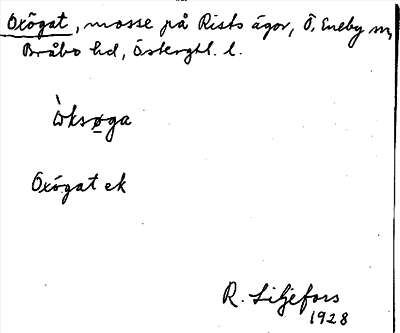 Oxögat, mosse på Rists ägor, Ö. Eneby sn,
Bråbo hd, Östergtl. l.
òksø̲ga
Oxögat ek
R. Liljefors
1928